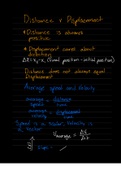 Distance v Displacement
* Distance is always positive
* Displacement cares about direction
Δx = x₂ - x₁ (final position - initial position)
Distance does not always equal Displacement
Average Speed and Velocity
average speed = distance
average velocity = displacement
Speed is a scalar, Velocity is a vector
V average = Δx
Δt